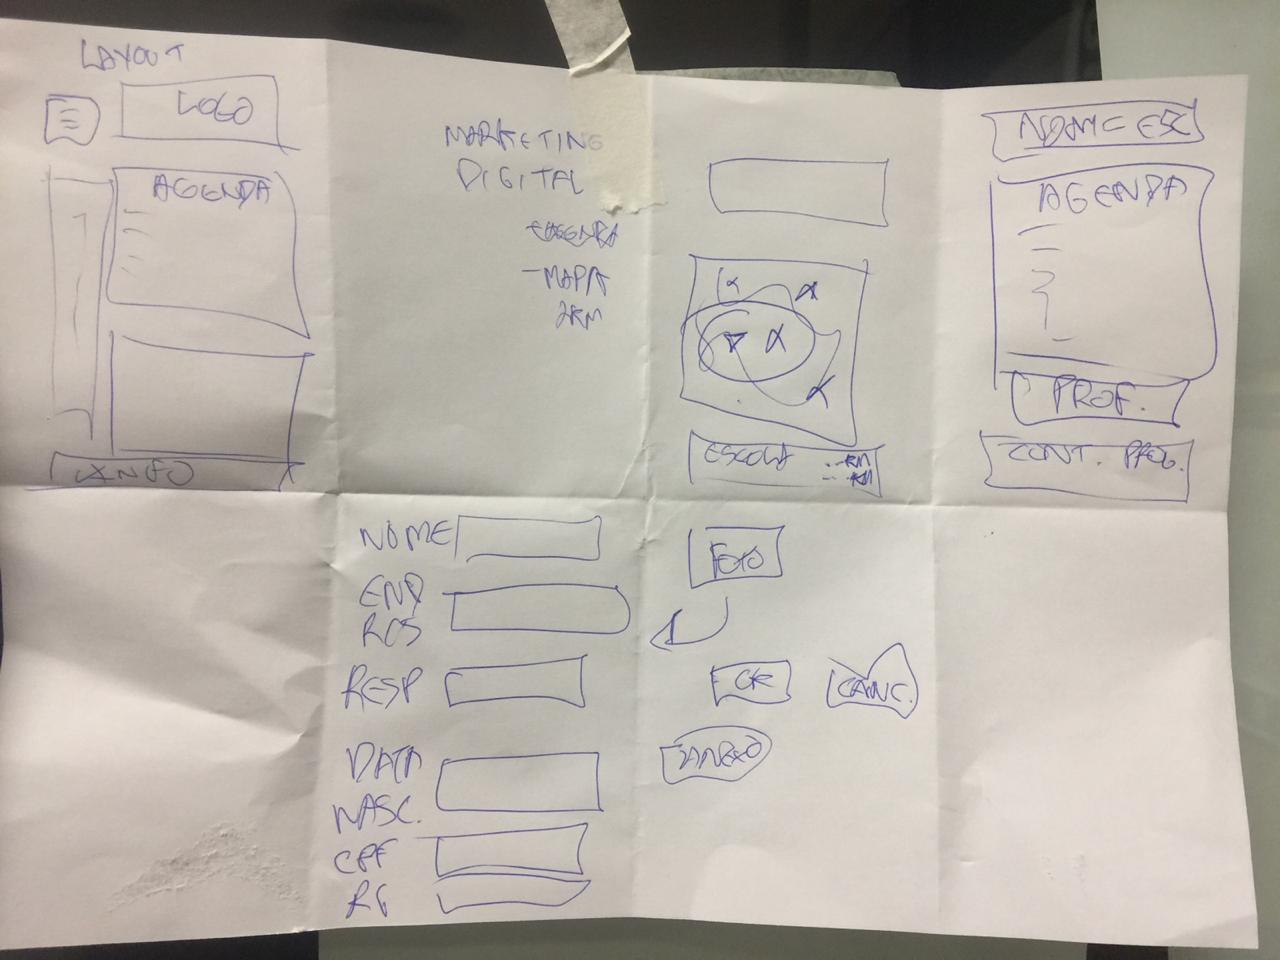 LAYOUT
LOGO
AGENDA
INFO
MARKETING
DIGITAL
AGENDA
- MAPA
2KM
ESCOLA
KM
KM
NOME ESC
AGENDA
PROF.
CONT. PROG.
NOME
END
RES
RESP
DATA
NASC.
CPF
RG
FOTO
OK
CANC.
ANEXO